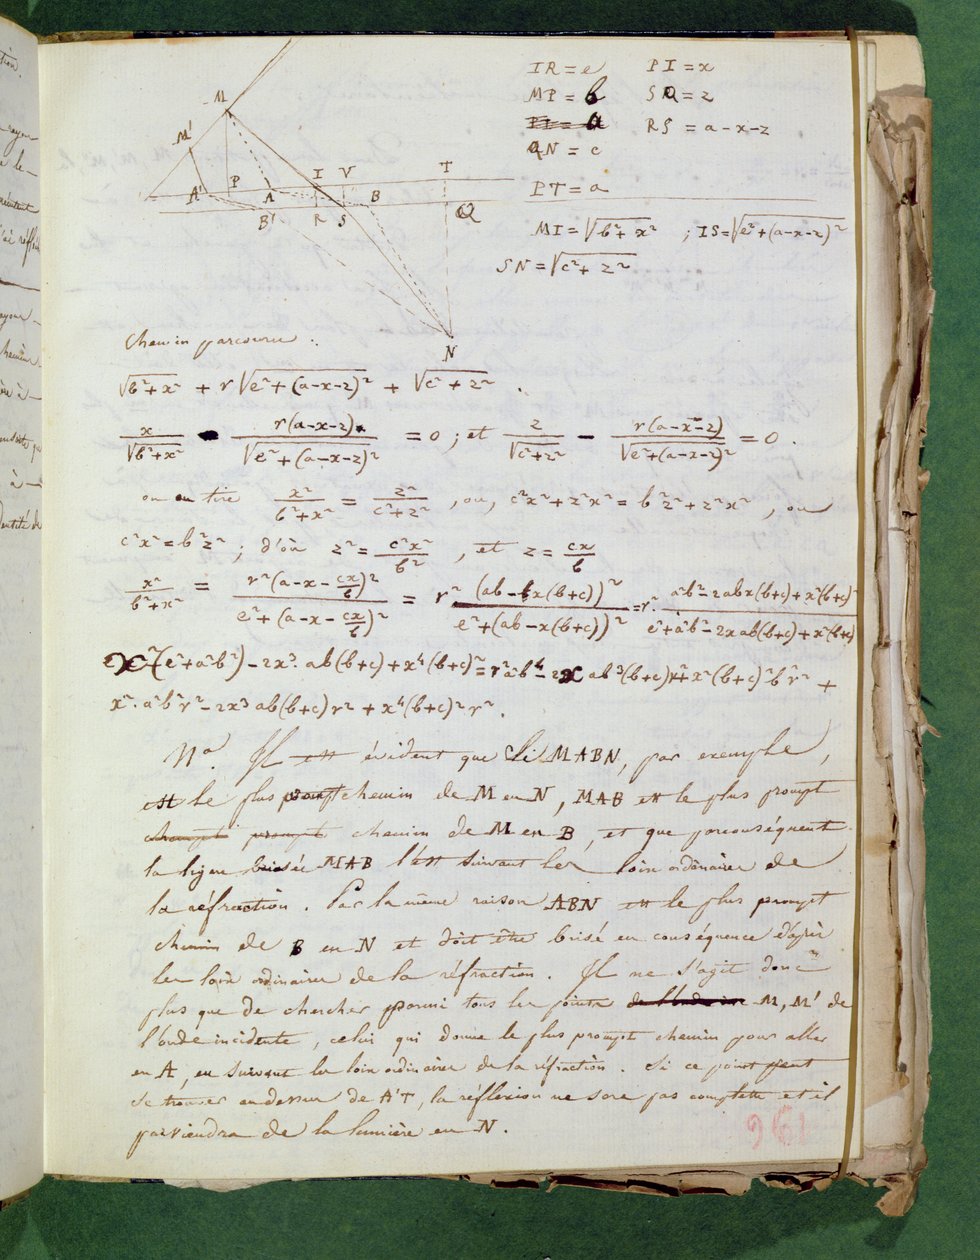 M
M'
A'
P
A
I
V
B
T
B'
R
S
Q
N
IR = e PI = x
MP = b SQ = z
PI = a RS = a-x-z
QN = c
PT = a
MI = √(b²+x²) ; IS = √(e²+(a-x-z)²)
SN = √(c²+z²)
Chemin parcouru :
√(b²+x²) + r√(e²+(a-x-z)²) + √(c²+z²) .
x/√(b²+x²) - r(a-x-z)/√(e²+(a-x-z)²) = 0 ; et z/√(c²+z²) - r(a-x-z)/√(e²+(a-x-z)²) = 0 .
on en tire x²/(b²+x²) = z²/(c²+z²) , ou, c²x²+z²x² = b²z²+z²x² , ou
c²x² = b²z² ; d'où z² = c²x²/b² , et z = cx/b
x²/(b²+x²) = r²(a-x-cx/b)²/(e²+(a-x-cx/b)²) = r² (ab-x(b+c))²/(e²+(ab-x(b+c))²) = r² . (a²b²-2abx(b+c)+x²(b+c)²)/(e²+a²b²-2xab(b+c)+x²(b+c)²)
x²(e²+a²b²)-2x³.ab(b+c)+x⁴(b+c)² = r²a²b⁴-2x ab³(b+c)r²+x²(b+c)²b²r² +
x².a²b²r²-2x³ab(b+c)r²+x⁴(b+c)²r².
Nª. Il est évident que si MABN, par exemple,
est le plus prompt chemin de M en N, MAB est le plus prompt
chemin de M en B, et que par conséquent
la ligne brisée MAB l'est suivant les loix ordinaires de
la réfraction. Par la même raison ABN est le plus prompt
chemin de B en N et doit être brisé en conséquence d'après
les loix ordinaires de la réfraction. Il ne s'agit donc
plus que de chercher parmi tous les points M, M' de
l'onde incidente, celui qui donne le plus prompt chemin pour aller
en A, en suivant les loix ordinaires de la réfraction. Si ce point peut
se trouver au dessus de A'T, la réflexion ne sera pas complette et il
parviendra de la lumière en N.
196